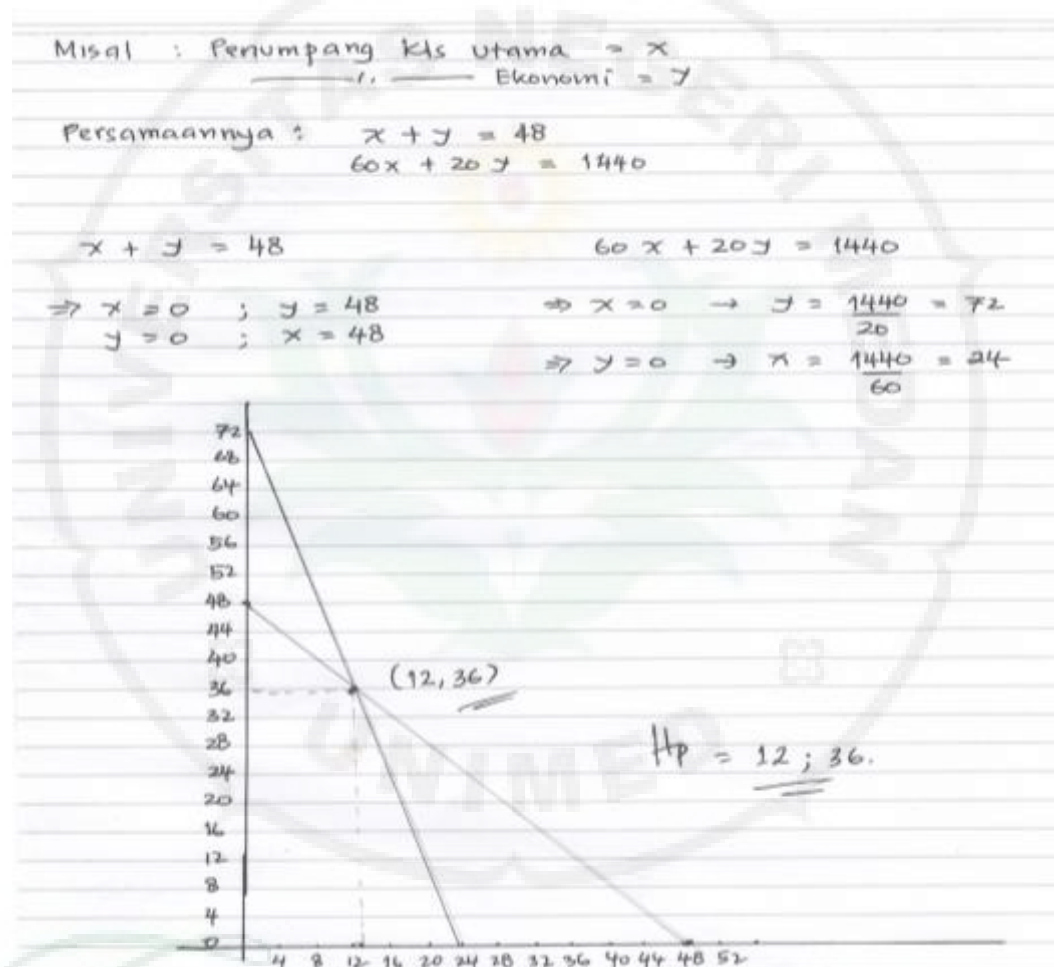 Misal : Penumpang kls utama = x
——— 〃 ——— Ekonomi = y
Persamaannya : x + y = 48
60x + 20y = 1440
x + y = 48
⇒ x = 0 ; y = 48
y = 0 ; x = 48
60x + 20y = 1440
⇒ x = 0 → y = 1440/20 = 72
⇒ y = 0 → x = 1440/60 = 24
72
68
64
60
56
52
48
44
40
36
32
28
24
20
16
12
8
4
0
(12, 36)
Hp = 12 ; 36.
4 8 12 16 20 24 28 32 36 40 44 48 52
UNIVERSITAS NEGERI MEDAN
UNIMED